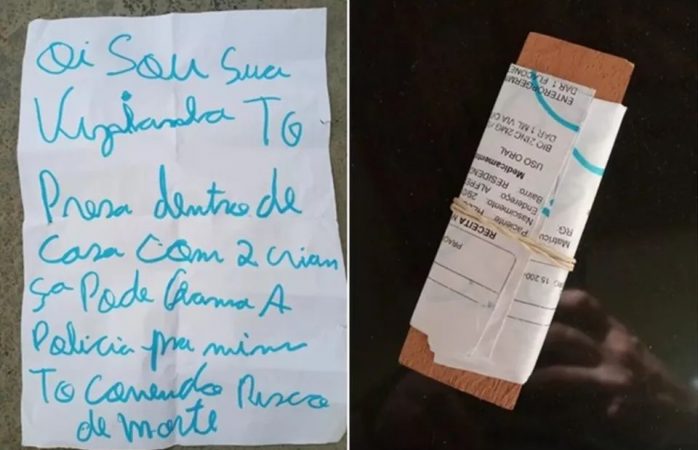 oi Sou Sua
Vizianha TO
Presa dentro de
Casa Com 2 crian
ça Pode Chama A
Policia pra mim
To Correndo Risco
de morte
ENTEROGERMI
DAR 1 FLACONE
BIO ZINC 2MG
DAR 1 ML VIA
USO ORAL
Medicamento
Bairro: RESIDEN
Endereço: ALFRE
Nascimento: 29
Paciente
RECEITA
Matricu
RG:
15.200